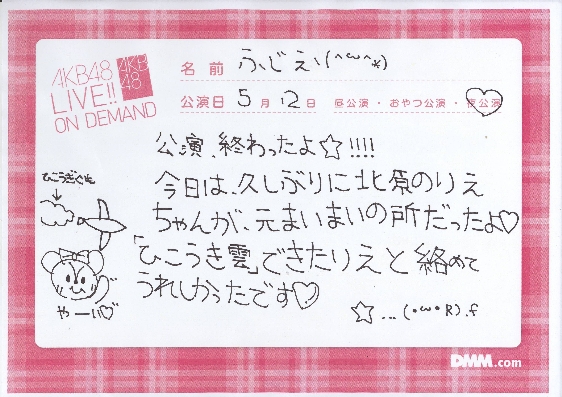 AKB48
LIVE!!
ON DEMAND
AKB
48
名前 ふじえ、\(^ω^*)
公演日 5月12日 昼公演・おやつ公演・夜公演
公演、終わったよ☆!!!!
今日は、久しぶりに北原のりえ
ちゃんが、元まいまいの所だったよ♡
「ひこうき雲」できたりえと絡めて
うれしかったです♡
☆...(・ω・R).f
ひこうきぐも
やーい♡
DMM.com